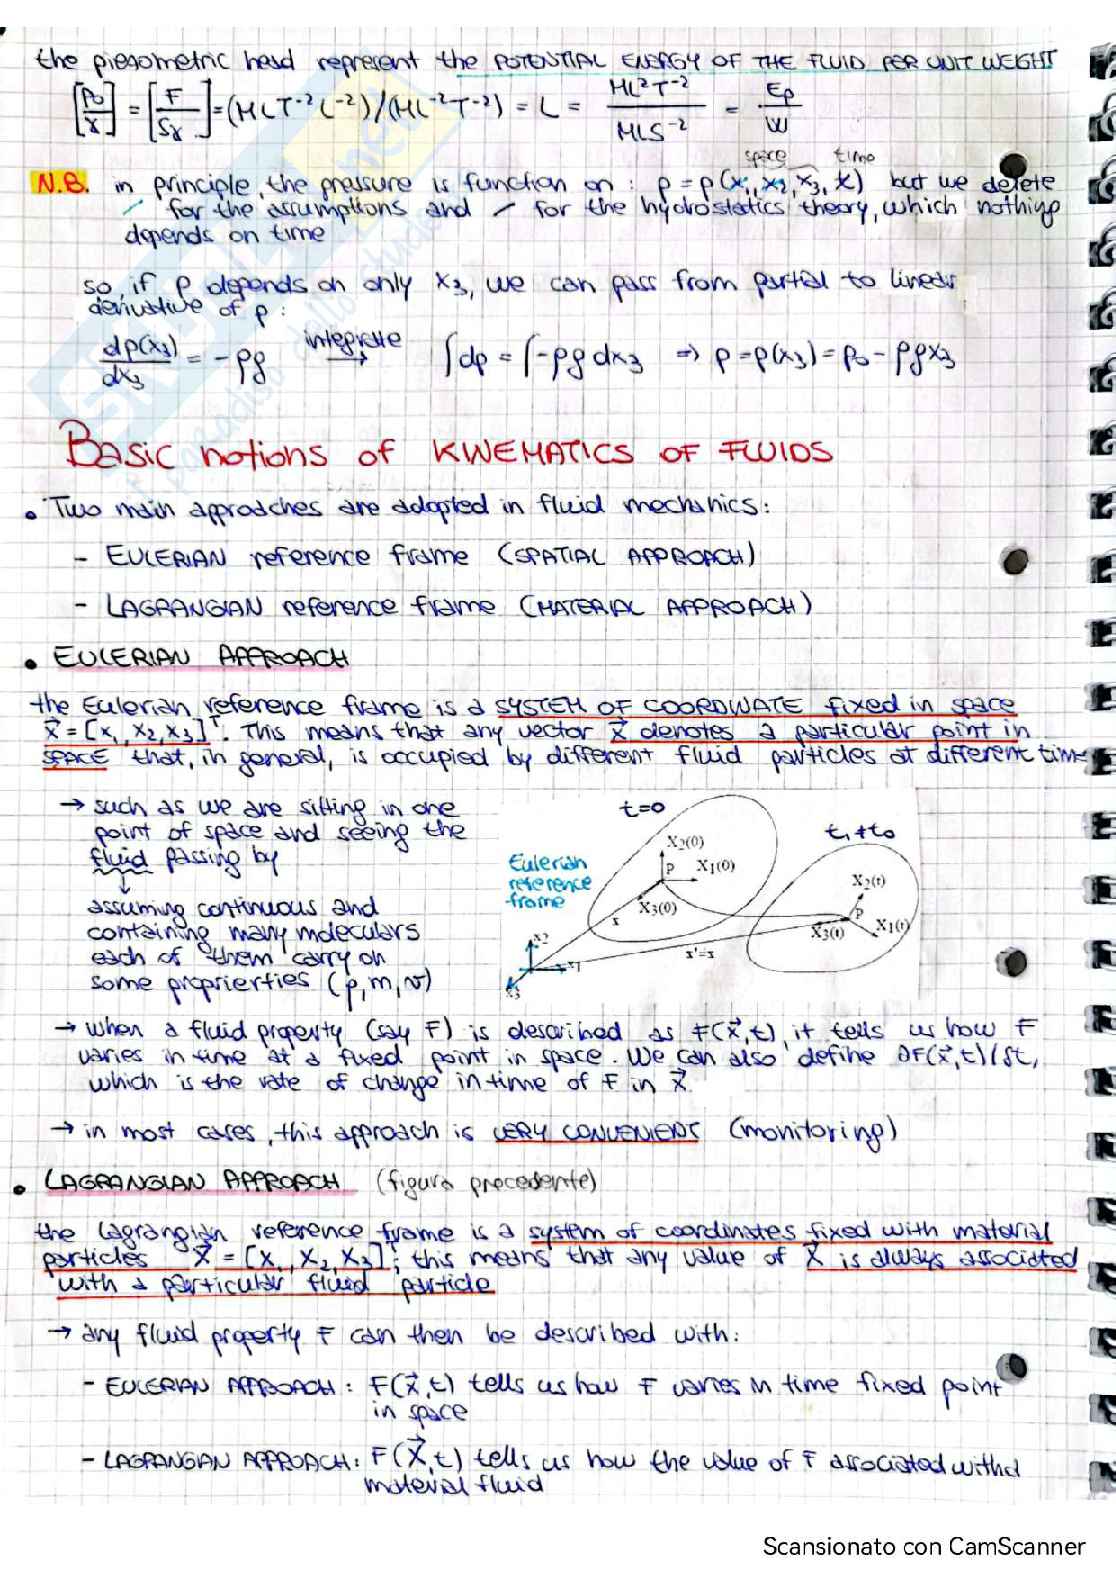 the piesometric head represent the POTENTIAL ENERGY OF THE FLUID PER UNIT WEIGHT
[P₀/γ] = [F/Sγ] = (MLT⁻² L⁻²)/(ML⁻²T⁻²) = L = ML²T⁻²/MLS⁻² = Ep/W
space time
N.B. in principle, the pressure is function on : p = p(x₁, x₂, x₃, t) but we delete
/ for the assumptions and / for the hydrostatics theory, which nothing
depends on time
so, if p depends on only x₃, we can pass from partial to linear
derivative of p :
dp(x₃)/dx₃ = -ρg integrate → ∫dp = ∫-ρg dx₃ ⇒ p = p(x₃) = p₀ - ρgx₃
Basic notions of KINEMATICS OF FLUIDS
• Two main approaches are adopted in fluid mechanics:
- EULERIAN reference frame (SPATIAL APPROACH)
- LAGRANGIAN reference frame (MATERIAL APPROACH)
• EULERIAN APPROACH
the Eulerian reference frame is a SYSTEM OF COORDINATE fixed in space
x⃗ = [x₁, x₂, x₃]ᵀ. This means that any vector x⃗ denotes a particular point in
SPACE that, in general, is occupied by different fluid particles at different time
→ such as we are sitting in one
point of space and seeing the
fluid passing by
↓
assuming continuous and
containing many moleculars
each of them carry on
some proprierties (ρ, m, v)
t=0
t₁≠t₀
Eulerian
reference
frame
X₂(0)
P
X₁(0)
X₃(0)
x
X₂(t)
P
X₁(t)
X₃(t)
x'=x
x₂
x₁
x₃
→ when a fluid property (say F) is described as F(x⃗,t), it tells us how F
varies in time at a fixed point in space. We can also define ∂F(x⃗,t)/δt,
which is the rate of change in time of F in x⃗
→ in most cases, this approach is VERY CONVENIENT (monitoring)
• LAGRANGIAN APPROACH (figura precedente)
the lagrangian reference frame is a system of coordinates fixed with material
particles X⃗ = [X₁, X₂, X₃]ᵀ; this means that any value of X⃗ is always associated
with a particular fluid particle
→ any fluid property F can then be described with:
- EULERIAN APPROACH: F(x⃗,t) tells us how F varies in time fixed point
in space
- LAGRANGIAN APPROACH: F(X⃗,t) tells us how the value of F associated with a
material fluid
Scansionato con CamScanner